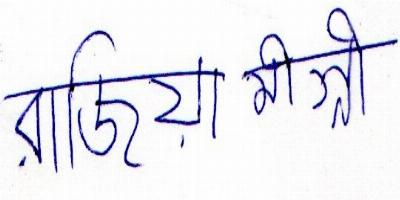 রাজিয়া মীস্ত্রী